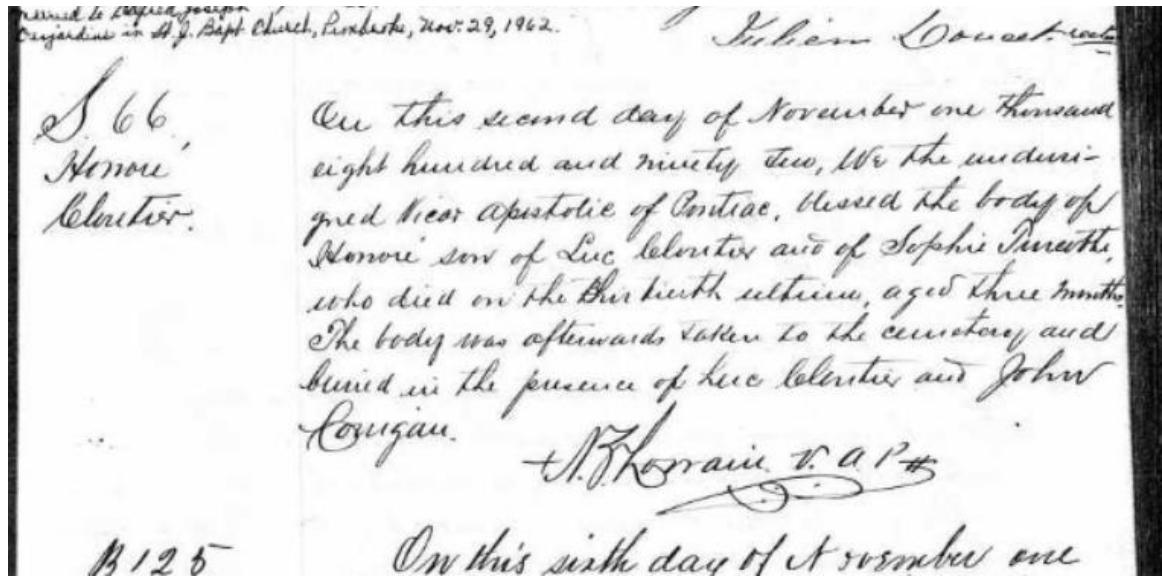 married to Joseph
Desjardins in St. J. Bapt Church, Pembroke, Nov. 29, 1962.
Julien Doucet
S. 66.
Honoré
Cloutier.
On this second day of November one thousand
eight hundred and ninety two, We the undersi-
gned Vicar Apostolic of Pontiac, blessed the body of
Honoré son of Luc Cloutier and of Sophie Turcotte,
who died on the thirtieth ultimo, aged three months.
The body was afterwards taken to the cemetery and
buried in the presence of Luc Cloutier and John
Corrigan.
+ N. Z. Lorrain. V. A. P.
B 125
On this sixth day of November one